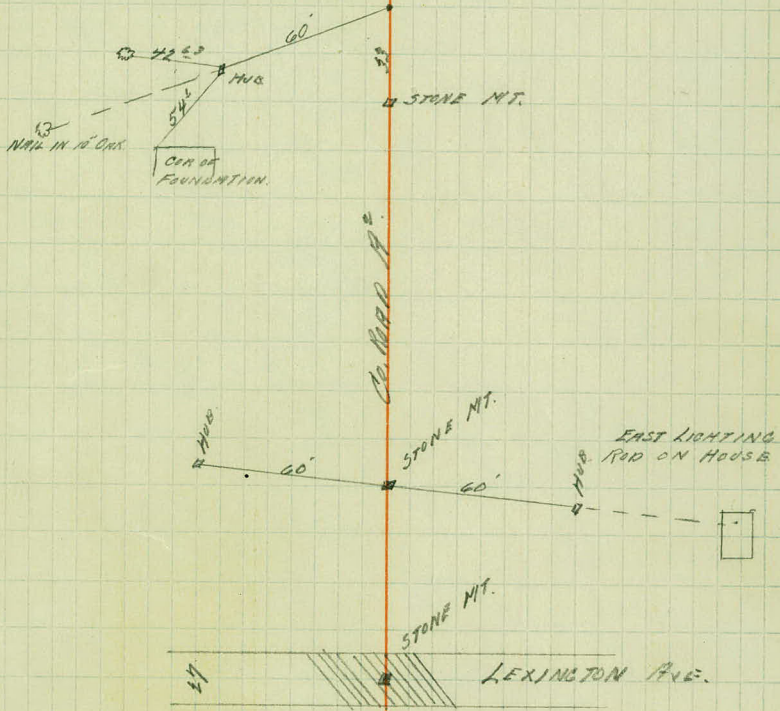 60'
42 63
HUB
54 1
STONE M'T.
NAIL IN 10" OAK
COR OF
FOUNDATION.
CO. ROAD
STONE MT.
HUB
60'
60'
HUB
EAST LIGHTING
ROD ON HOUSE
STONE MT.
LEXINGTON AVE.